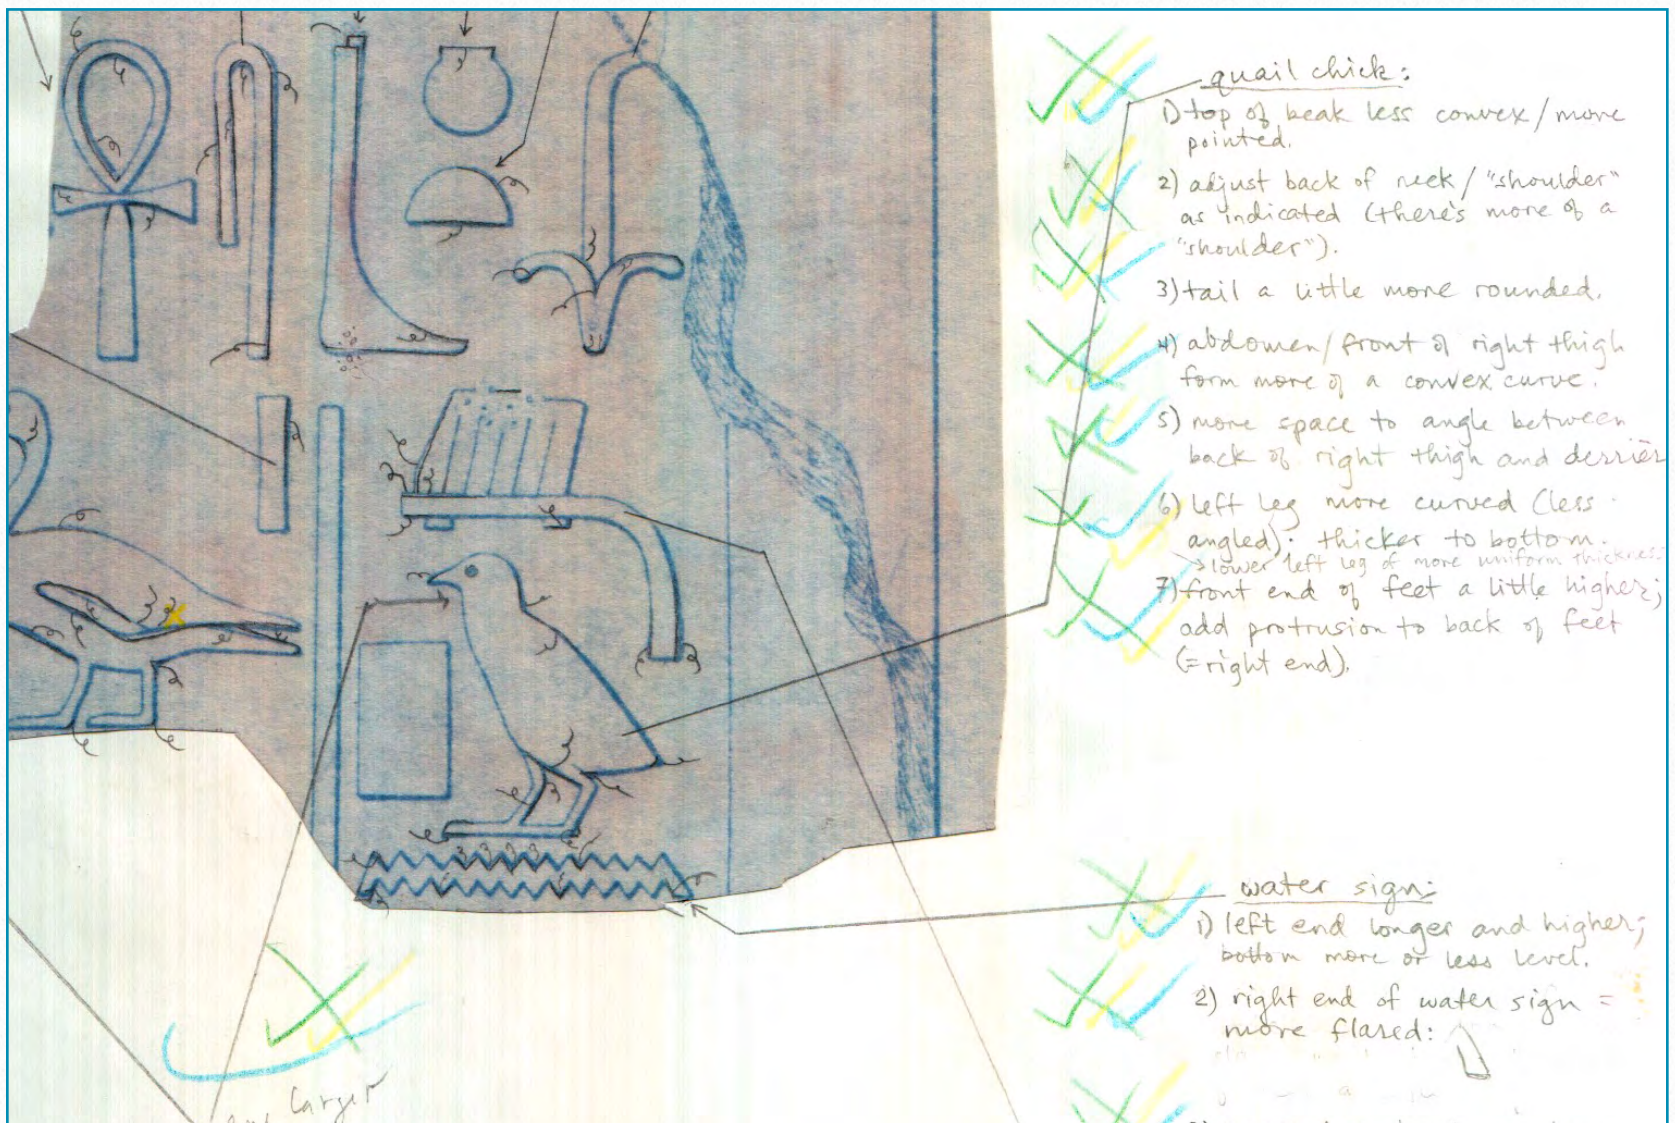 quail chick:
1) top of beak less convex / more
pointed.
2) adjust back of neck / "shoulder"
as indicated (there's more of a
"shoulder").
3) tail a little more rounded.
4) abdomen / front of right thigh
form more of a convex curve.
5) more space to angle between
back of right thigh and derrièr
6) left leg more curved (less
angled); thicker to bottom.
→ lower left leg of more uniform thickness
7) front end of feet a little higher;
add protrusion to back of feet
(= right end).
water sign:
1) left end longer and higher;
bottom more or less level.
2) right end of water sign =
more flared:
larger